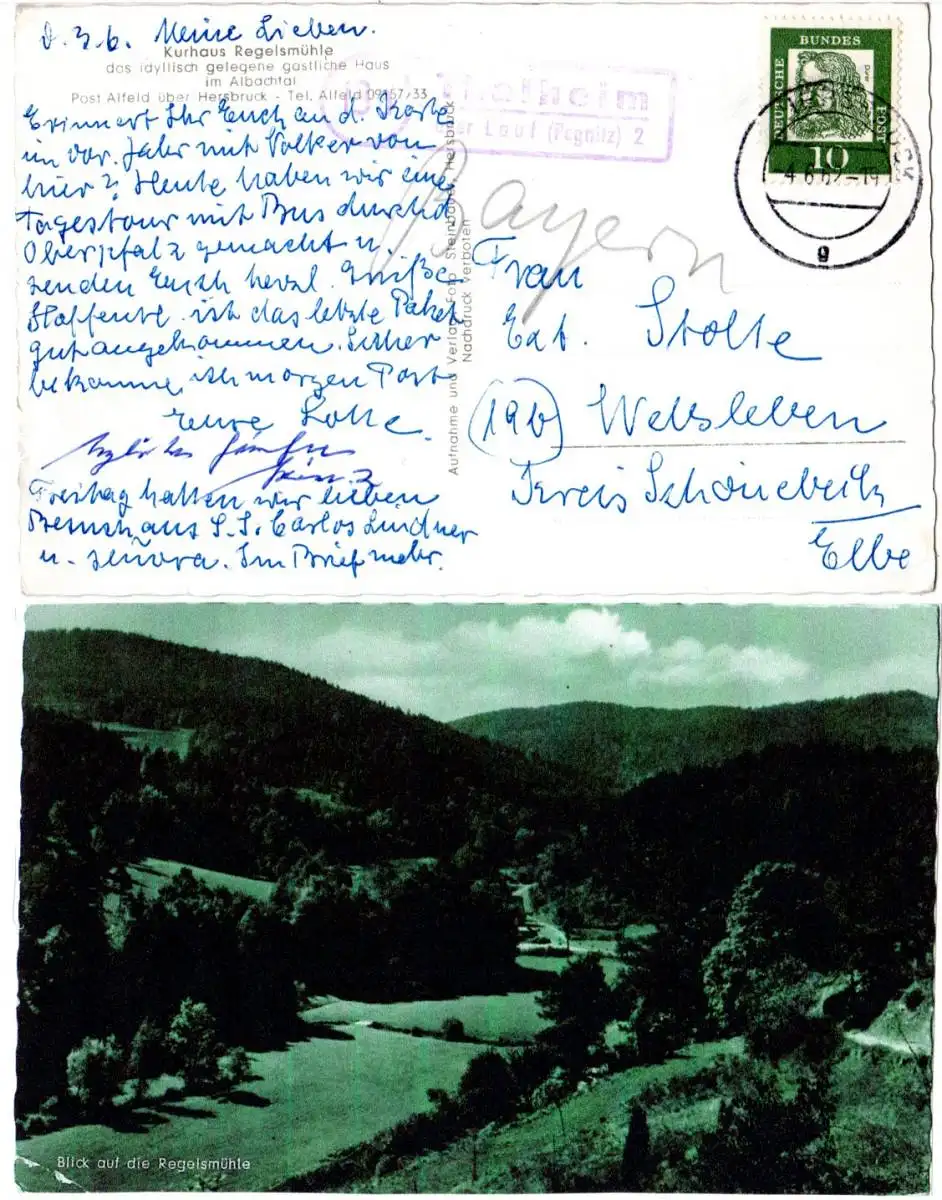 d. 3.6. Meine Lieben.
Kurhaus Regelsmühle
das idyllisch gelegene gastliche Haus
im Albachtal
Post Alfeld über Hersbruck - Tel. Alfeld 09157/33
Erinnert Ihr Euch an d. Karte
im vor. Jahr mit Volker von
hier? Heute haben wir eine
Tagestour mit Bus durch d.
Oberpfalz gemacht u.
senden Euch herzl. Grüße.
Hoffentl. ist das letzte Paket
gut angekommen. Sicher
bekomme ich morgen Post
Eure Lotte.
Freitag hatten wir lieben
Besuch aus S. S. Carlos Lindner
u. señora. Im Brief mehr.
Aufnahme und Verlag Foto Steinbauer, Hersbruck
Nachdruck verboten
über Lauf (Pegnitz) 2
DEUTSCHE BUNDESPOST
10
4.6.62-19
g
Bayern
Frau
Ext. Stolte
(19b) Welsleben
Kreis Schönebeck
Elbe
Blick auf die Regelsmühle